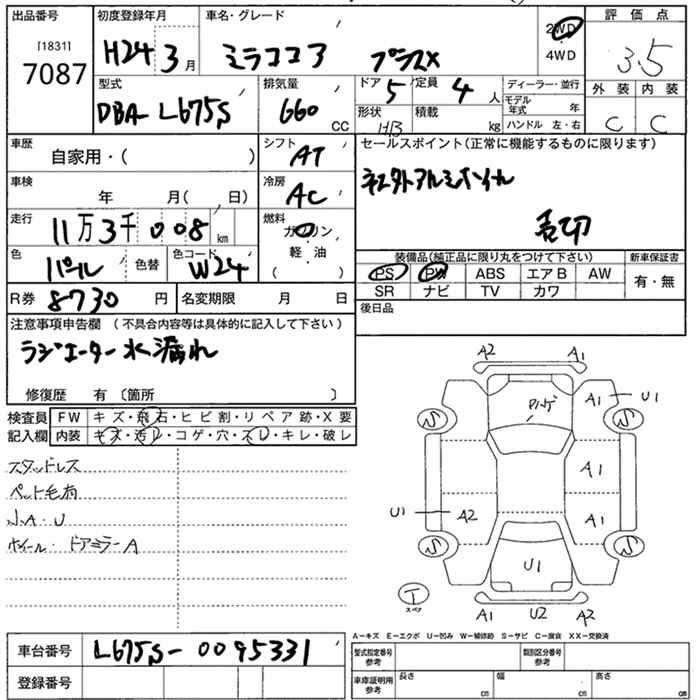 出品番号 初度登録年月 車名・グレード 2WD 評価点
[1831] H24 3月 ミラココア プラスX ・ 3.5
7087 4WD
型式 排気量 ドア 5 定員 4人 ディーラー・並行 外装 内装
DBA- L675S 660 CC 形状 HB 積載 kg モデル年式 年 C C
ハンドル 左・右
車歴 シフト AT セールスポイント(正常に機能するものに限ります)
自家用・( )
車検 年 月( 日) 冷房 AC 社外アルミホイル
走行 11万3千008km 燃料 ガソリン 舌切
軽・油
色 パール 色替 色コード W24 ( ) 装備品(純正品に限り丸をつけて下さい) 新車保証書
PS PW ABS エアB AW 有・無
R券 8730円 名変期限 月 日 SR ナビ TV カワ
後日品
注意事項申告欄 (不具合内容等は具体的に記入して下さい)
ラジエーター水漏れ
修復歴 有 〔箇所 〕
検査員 FW キズ・飛石・ヒビ割・リペア跡・X要
記入欄 内装 キズ・汚レ・コゲ・穴・スレ・キレ・破レ
スタッドレス
ペット毛有
小A・U
ホイール・ドアミラーA
A2 A1
A1 U1
ハンゲ
S S
A1
U1 A2 A1
S S
U1
T
スペア
A1 U2 A2
A−キズ E−エクボ U−凹み W−補修跡 S−サビ C−腐食 XX−交換済
車台番号 L675S-0095331 型式指定番号 参考 類別区分番号 参考
登録番号 車庫証明用 参考 長さ cm 幅 cm 高さ cm